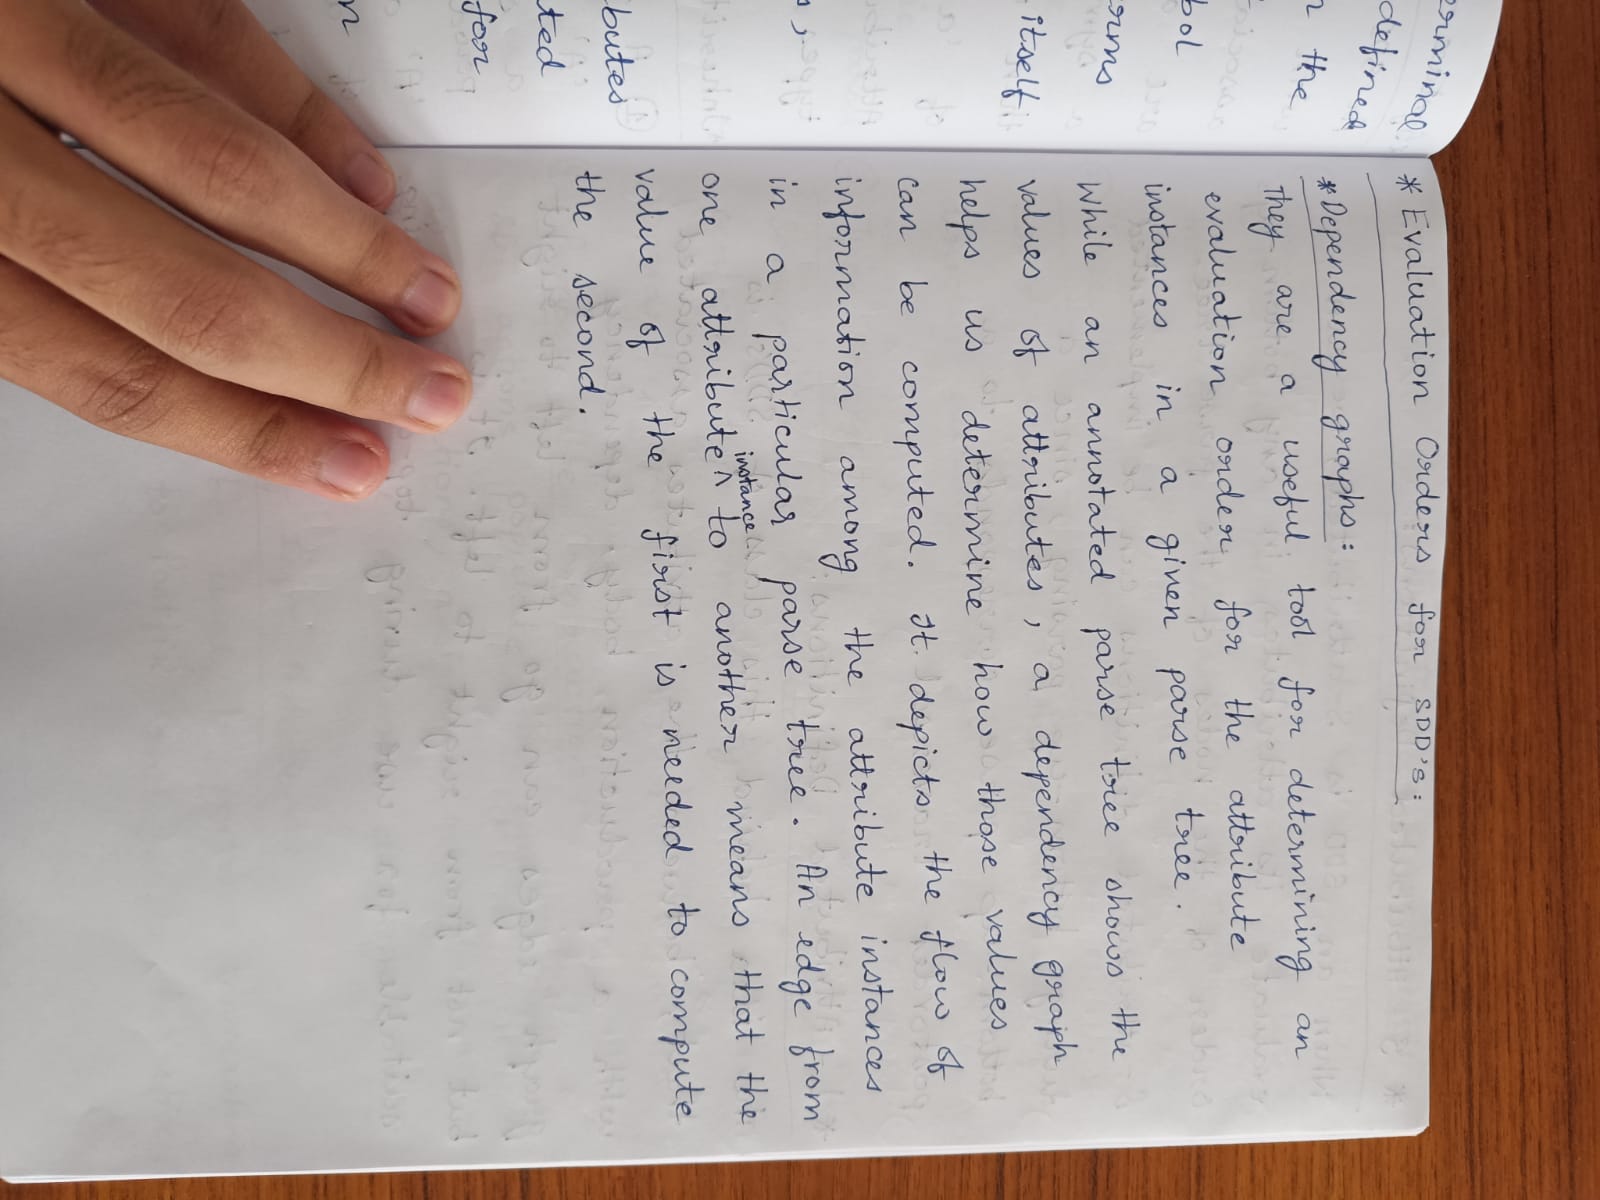 erminal
defined
n the
bol
erms
itself
butes
ted
for
n
* Evaluation Orders for SDD's :
* Dependency graphs :
They are a useful tool for determining an
evaluation order for the attribute
instances in a given parse tree.
While an annotated parse tree shows the
values of attributes, a dependency graph
helps us determine how those values
can be computed. It depicts the flow of
information among the attribute instances
in a particular parse tree. An edge from
one attribute ^ instance to another means that the
value of the first is needed to compute
the second.